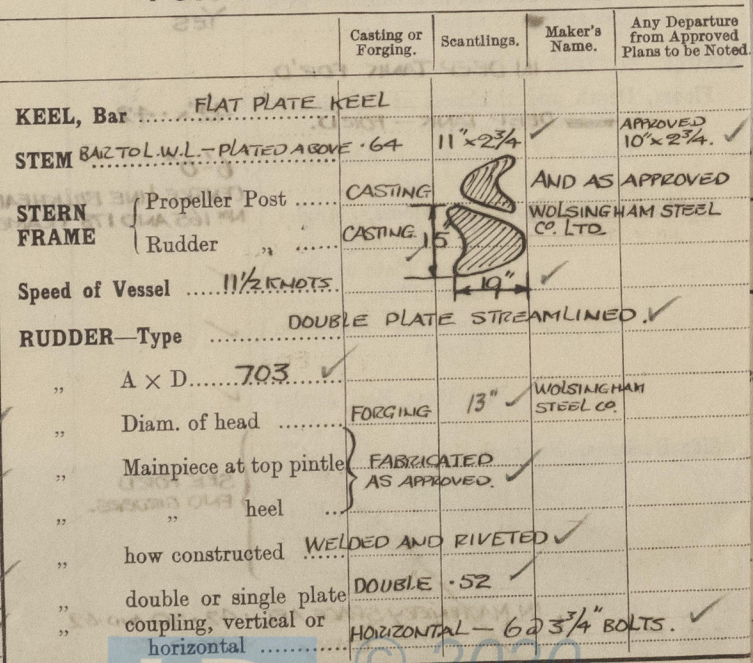 Casting or Forging. Scantlings. Maker's Name. Any Departure from Approved Plans to be Noted.
KEEL, Bar FLAT PLATE KEEL
STEM BAR TO L.W.L. - PLATED ABOVE .64 11" x 2 3/4 ✓ APPROVED 10" x 2 3/4. ✓
STERN FRAME { Propeller Post ...... CASTING AND AS APPROVED
Rudder „ ...... CASTING 15" WOLSINGHAM STEEL CO. LTD
19"
Speed of Vessel ...... 11 1/2 KNOTS. ✓
RUDDER—Type ...... DOUBLE PLATE STREAMLINED. ✓
„ A × D...... 703 ✓
„ Diam. of head ...... FORGING 13" ✓ WOLSINGHAM STEEL CO.
„ Mainpiece at top pintle } FABRICATED AS APPROVED. ✓
„ „ heel ...
„ how constructed ...... WELDED AND RIVETED ✓
„ double or single plate DOUBLE .52 ✓
„ coupling, vertical or horizontal ...... HORIZONTAL — 6 @ 3 3/4" BOLTS. ✓
© 2020